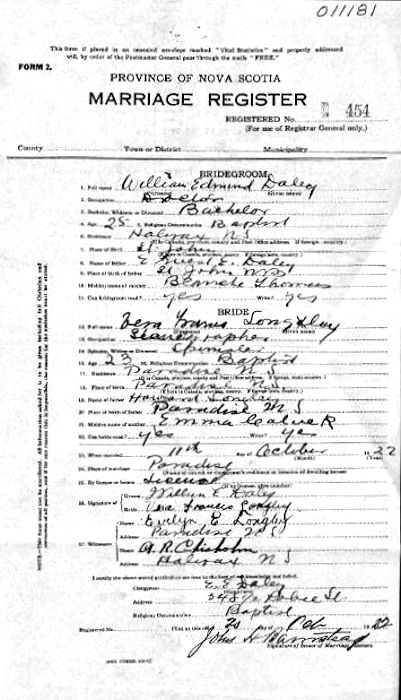 011181
This form if placed in an unsealed envelope marked "Vital Statistics" and properly addressed
will, by order of the Postmaster General pass through the mails "FREE."
FORM 2.
PROVINCE OF NOVA SCOTIA
MARRIAGE REGISTER
REGISTERED No. 454
(For use of Registrar General only.)
County Town or District Municipality
BRIDEGROOM
1. Full name William Edmund Daley
2. Occupation Doctor
3. Bachelor, Widower or Divorced Bachelor
4. Age 25 5. Religious Denomination Baptist
6. Residence Halifax N S
7. Place of Birth St John
8. Name of father E. E. Daley
9. Place of birth of father St John NB
10. Maiden name of mother Blanche Thomas
11. Can bridegroom read? yes Write? yes
BRIDE
12. Full name Vera Francis Longley
13. Occupation Stenographer
14. Spinster, Widow or Divorced Spinster
15. Age 23 16. Religious Denomination Baptist
17. Residence Paradise N S
18. Place of birth Paradise N S
19. Name of father Howard Longley
20. Place of birth of father Paradise N S
21. Maiden name of mother Emma
22. Can bride read? yes Write? yes
23. When married 11th day of October 1922
24. Place of marriage Paradise
25. By license or banns License
26. Signature of Groom William E Daley
Bride Vera Francis Longley
27. Witnesses Name Evelyn E. Longley
Address Paradise N S
Name A. R. Chisholm
Address Halifax N S
I certify the above stated particulars are true to the best of my knowledge and belief.
Clergyman E. E. Daley
Address St
Religious Denomination Baptist
Registered No. Filed at this office day of 1922
John H
Signature of Issuer of Marriage Licenses